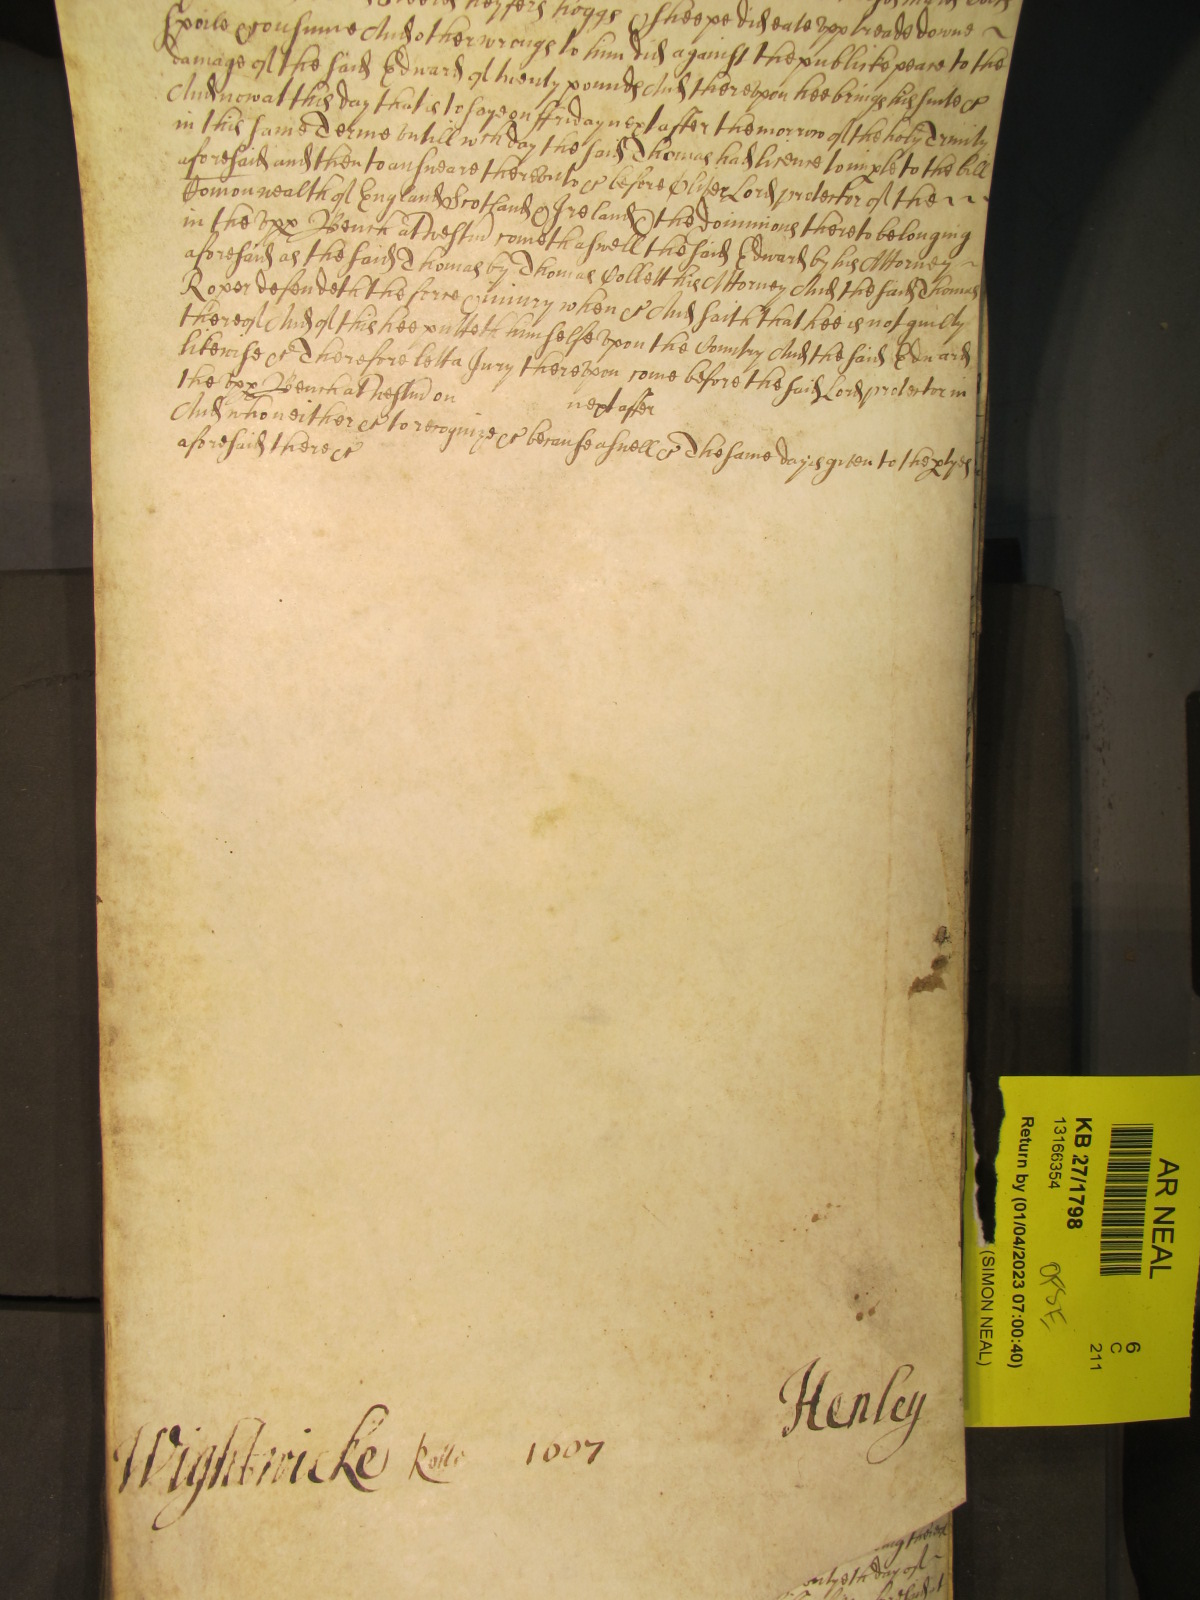 heyfers hoggs & sheepe did eate upp treade downe
spoile & consume And other wrongs to him did against the publicke peace to the
damage of the said Edward of twenty pounds And thereupon hee brings his suite &c
And now at this day that is to saye on ffriday next after the morrow of the holy Trinity
in this same Terme untill wch day the said Thomas had licence to imple to the bill
aforesaid and then to answeare thereunto &c before Oliver Lord protector of the
Comonwealth of England Scotland & Ireland & the dominions thereto belonging
in the upp Bench at Westm cometh aswell the said Edward by his Attorney
aforesaid as the said Thomas by Thomas Collett his Attorney And the said Thomas
Roper defendeth the force & iniury when &c And saith that hee is not guilty
thereof And of this hee putteth himselfe upon the Country And the said Edward
likewise &c Therefore lett a Jury thereupon come before the said Lord protector in
the upp Bench at Westm on next after
And who neither &c to recognize &c because aswell &c The same day is given to the ptyes
aforesaid there &c
Henley
Wightwicke Rolle 1007
day of
AR NEAL
KB 27/1798
13166354
Return by (01/04/2023 07:00:40)
(SIMON NEAL)
6
C
211